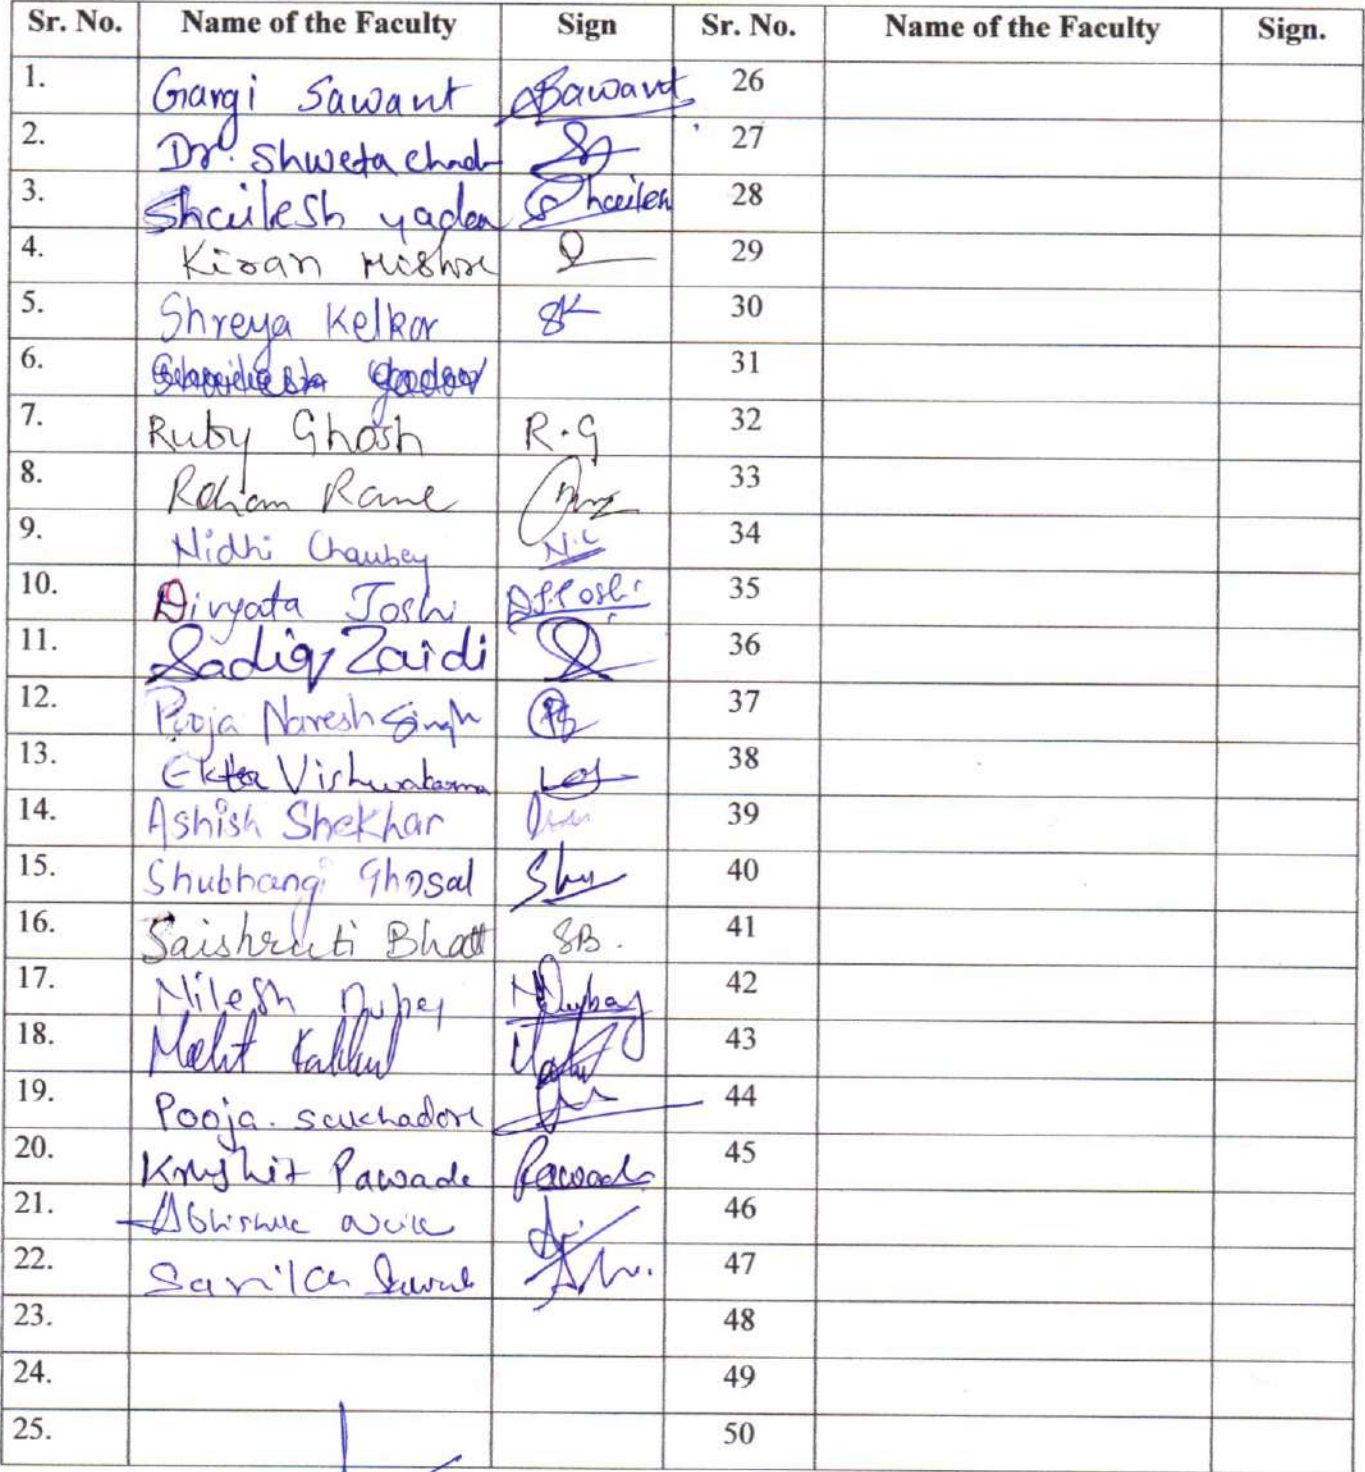 Sr. No. Name of the Faculty Sign Sr. No. Name of the Faculty Sign.
1. Gargi Sawant Sawant 26
2. Dr. Shweta 27
3. Shailesh yadav Shailesh 28
4. Kiran Mishra 29
5. Shreya Kelkar SK 30
6. 31
7. Ruby Ghosh R.G 32
8. Rane 33
9. Nidhi Chaubey N.C 34
10. Divyata Joshi 35
11. Sadiq Zaidi 36
12. Pooja Naresh Singh 37
13. Ekta Vishwakarma 38
14. Ashish Shekhar 39
15. Shubhangi Ghosal Shu 40
16. Saishruti Bhatt SB. 41
17. Nilesh Dubey NDubey 42
18. 43
19. Pooja. 44
20. Pawade Pawade 45
21. 46
22. 47
23. 48
24. 49
25. 50